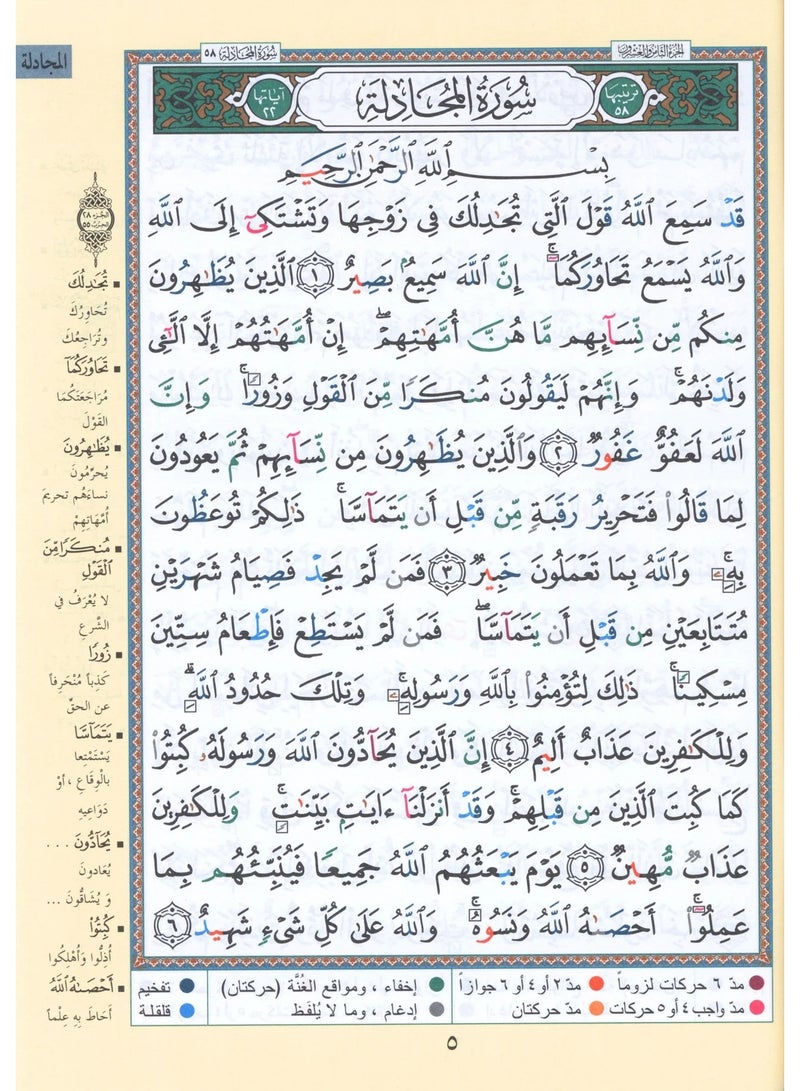 الجزء الثامن والعشرون
سورة المجادلة ٥٨
المجادلة
ترتيبها ٥٨
سُورَةُ المُجَادلَةِ
آياتها ٢٢
بِسْمِ اللَّهِ الرَّحْمَٰنِ الرَّحِيمِ
قَدْ سَمِعَ ٱللَّهُ قَوْلَ ٱلَّتِى تُجَٰدِلُكَ فِى زَوْجِهَا وَتَشْتَكِىٓ إِلَى ٱللَّهِ
وَٱللَّهُ يَسْمَعُ تَحَاوُرَكُمَآ ۚ إِنَّ ٱللَّهَ سَمِيعٌۢ بَصِيرٌ ١ ٱلَّذِينَ يُظَٰهِرُونَ
مِنكُم مِّن نِّسَآئِهِم مَّا هُنَّ أُمَّهَٰتِهِمْ ۖ إِنْ أُمَّهَٰتُهُمْ إِلَّا ٱلَّٰٓـِٔى
وَلَدْنَهُمْ ۚ وَإِنَّهُمْ لَيَقُولُونَ مُنكَرًا مِّنَ ٱلْقَوْلِ وَزُورًا ۚ وَإِنَّ
ٱللَّهَ لَعَفُوٌّ غَفُورٌ ٢ وَٱلَّذِينَ يُظَٰهِرُونَ مِن نِّسَآئِهِمْ ثُمَّ يَعُودُونَ
لِمَا قَالُوا۟ فَتَحْرِيرُ رَقَبَةٍ مِّن قَبْلِ أَن يَتَمَآسَّا ۚ ذَٰلِكُمْ تُوعَظُونَ
بِهِۦ ۚ وَٱللَّهُ بِمَا تَعْمَلُونَ خَبِيرٌ ٣ فَمَن لَّمْ يَجِدْ فَصِيَامُ شَهْرَيْنِ
مُتَتَابِعَيْنِ مِن قَبْلِ أَن يَتَمَآسَّا ۖ فَمَن لَّمْ يَسْتَطِعْ فَإِطْعَامُ سِتِّينَ
مِسْكِينًا ۚ ذَٰلِكَ لِتُؤْمِنُوا۟ بِٱللَّهِ وَرَسُولِهِۦ ۚ وَتِلْكَ حُدُودُ ٱللَّهِ ۗ
وَلِلْكَٰفِرِينَ عَذَابٌ أَلِيمٌ ٤ إِنَّ ٱلَّذِينَ يُحَآدُّونَ ٱللَّهَ وَرَسُولَهُۥ كُبِتُوا۟
كَمَا كُبِتَ ٱلَّذِينَ مِن قَبْلِهِمْ ۚ وَقَدْ أَنزَلْنَآ ءَايَٰتٍۭ بَيِّنَٰتٍ ۚ وَلِلْكَٰفِرِينَ
عَذَابٌ مُّهِينٌ ٥ يَوْمَ يَبْعَثُهُمُ ٱللَّهُ جَمِيعًا فَيُنَبِّئُهُم بِمَا
عَمِلُوٓا۟ ۚ أَحْصَىٰهُ ٱللَّهُ وَنَسُوهُ ۚ وَٱللَّهُ عَلَىٰ كُلِّ شَىْءٍ شَهِيدٌ ٦
الجزء ٢٨
الحزب ٥٥
تُجَٰدِلُكَ
تُحَاوِرُكَ
وتُرَاجِعُكَ
تَحَاوُرَكُمَآ
مُرَاجَعَتَكُمَا
القَوْلَ
يُظَٰهِرُونَ
يُحرِّمُونَ
نساءَهُم تحريمَ
أُمَّهَاتِهِمْ
مُنكَرًا مِّنَ
ٱلْقَوْلِ
لا يُعْرَفُ في
الشَّرعِ
زُورًا
كَذِباً مُنْحَرِفاً
عن الحَقِّ
يَتَمَآسَّا
يَسْتَمْتِعا
بالْوِقَاعِ، أوْ
دَوَاعِيهِ
يُحَآدُّونَ ...
يُعَادونَ
وَ يُشَاقُّونَ ...
كُبِتُوا۟
أُذِلُّوا وَأُهْلِكُوا
أَحْصَىٰهُ ٱللَّهُ
أحَاطَ بِهِ عِلْماً
مدّ ٦ حركات لزوماً
مدّ ٢ أو ٤ أو ٦ جوازاً
إخفاء، ومواقع الغُنَّة (حركتان)
تفخيم
مدّ واجب ٤ أو ٥ حركات
مدّ حركتان
إدغام، وما لا يُلفَظ
قلقلة
٥